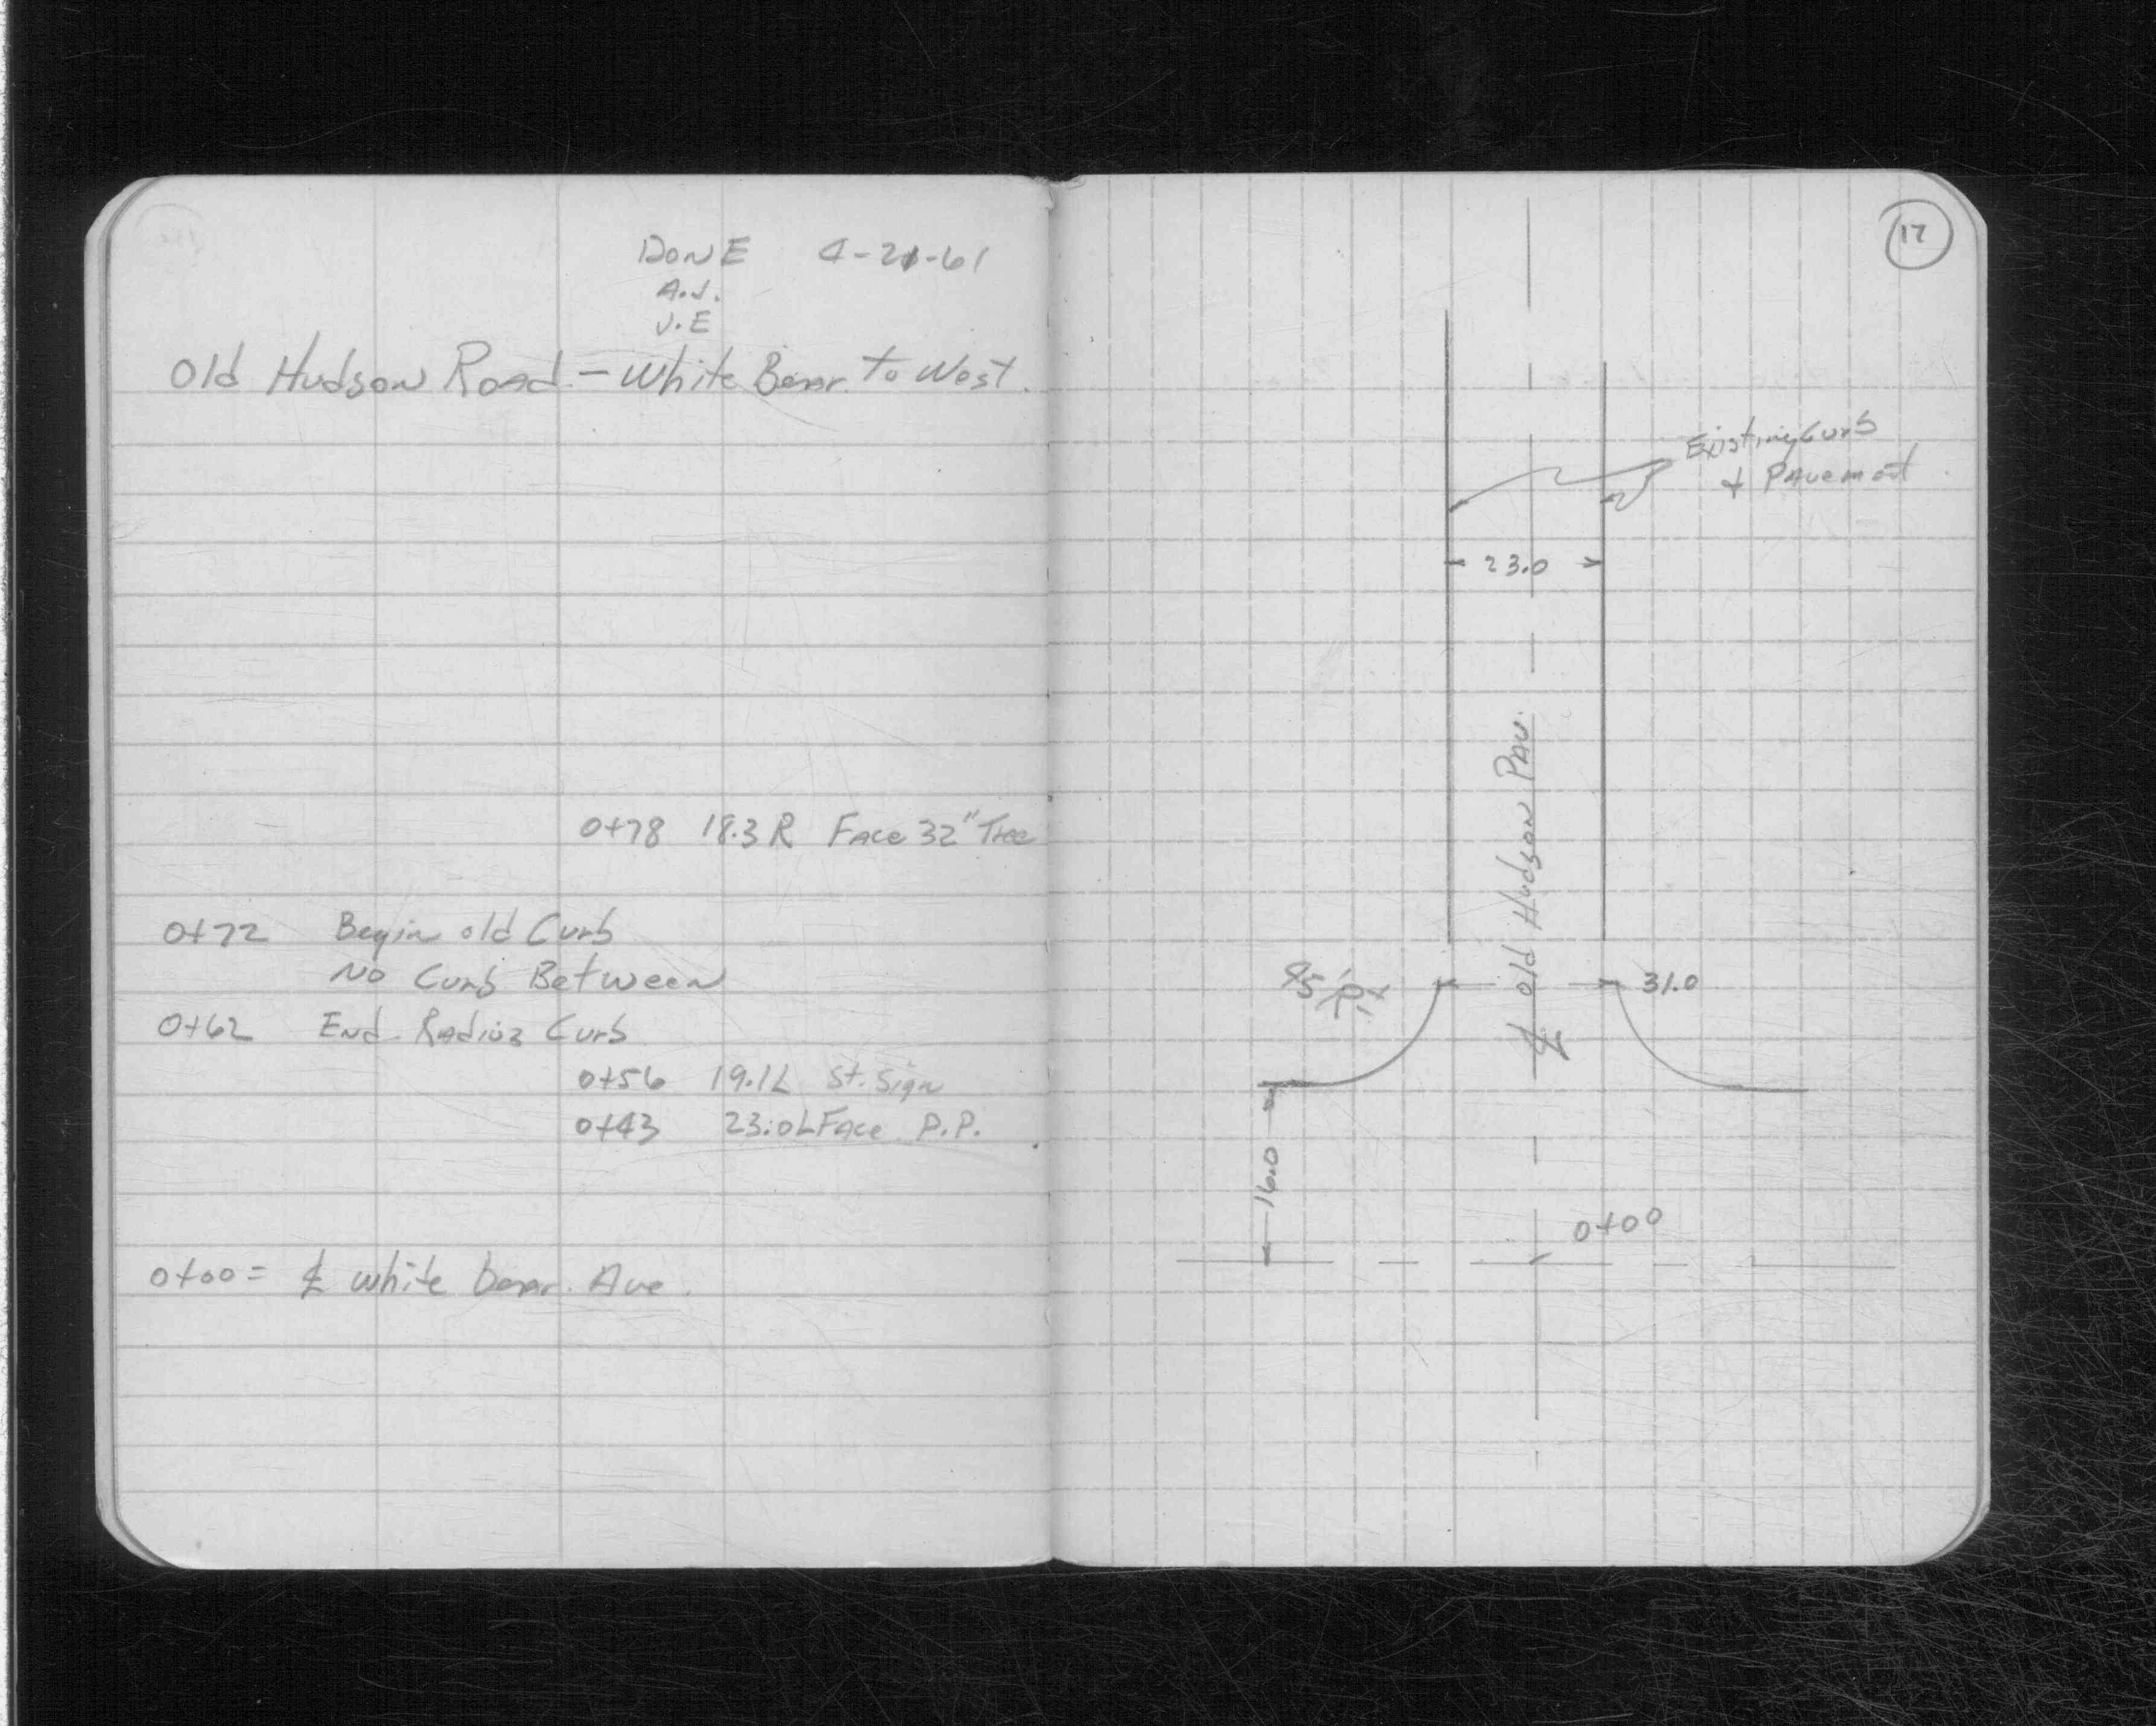 DonE 4-21-61
A.J.
J.E
Old Hudson Road - White Bear to West.
0+78 18.3 R Face 32" Tree
0+72 Begin old Curb
No Curb Between
0+62 End Radius Curb
0+56 19.1L St. Sign
0+43 23.0L Face P.P.
0+00 = ℄ white bear Ave.
17
Existing Curb
+ Pavement
23.0
℄ old Hudson Pav.
31.0
16.0
0+00